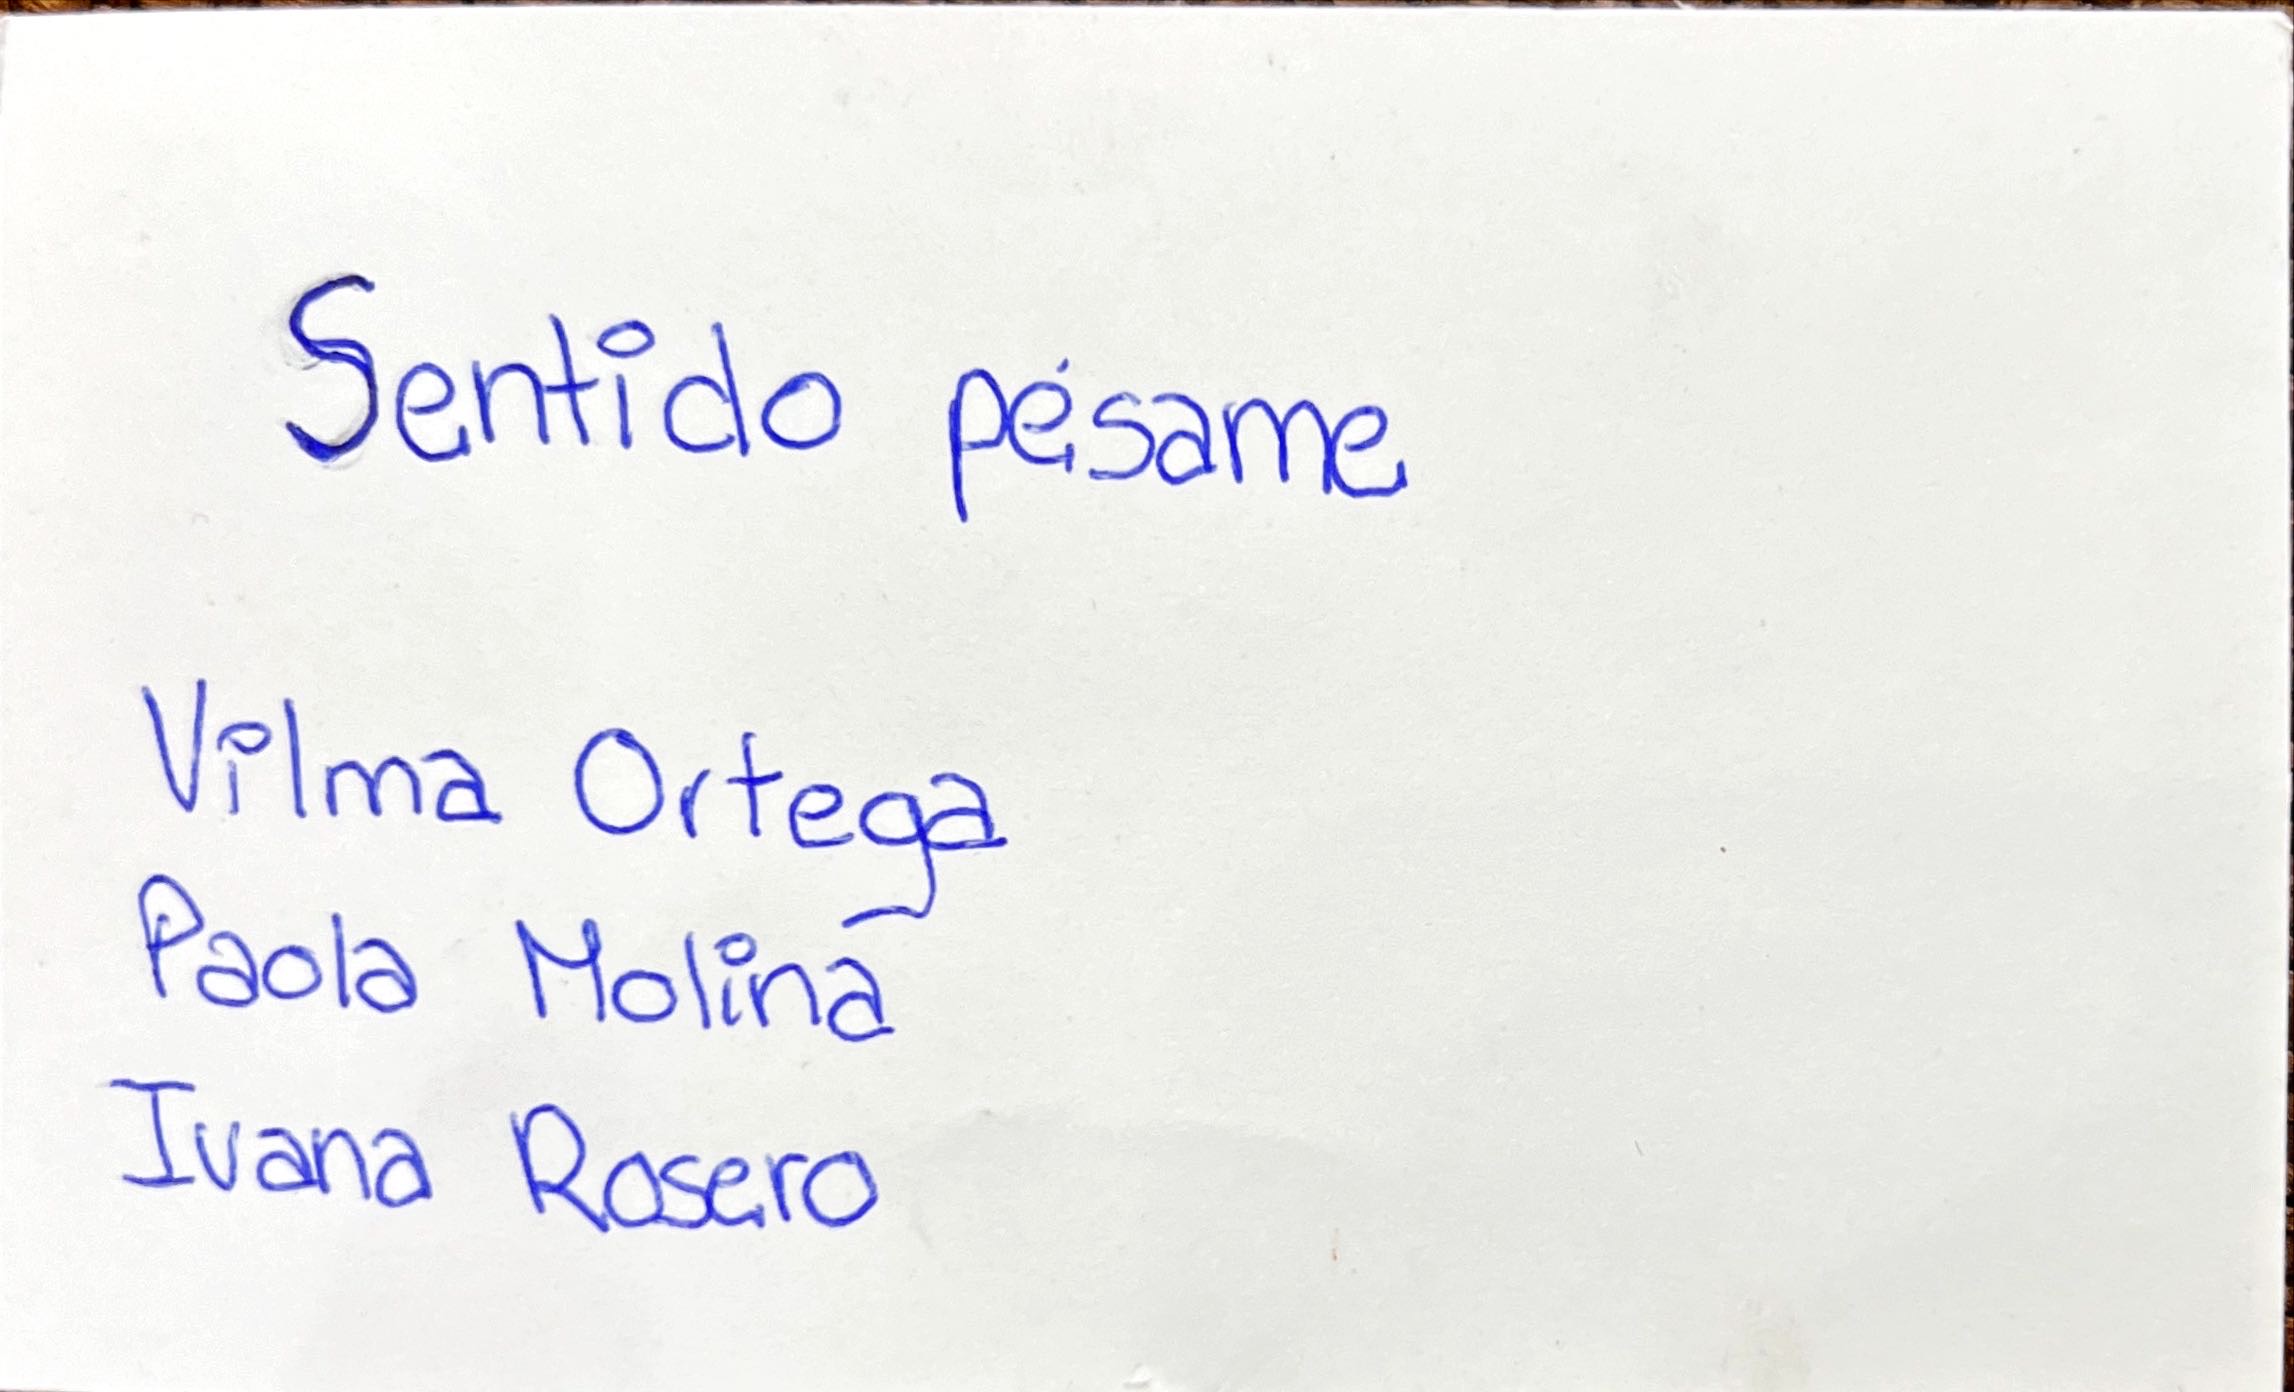 Sentido pésame
Vilma Ortega
Paola Molina
Ivana Rosero